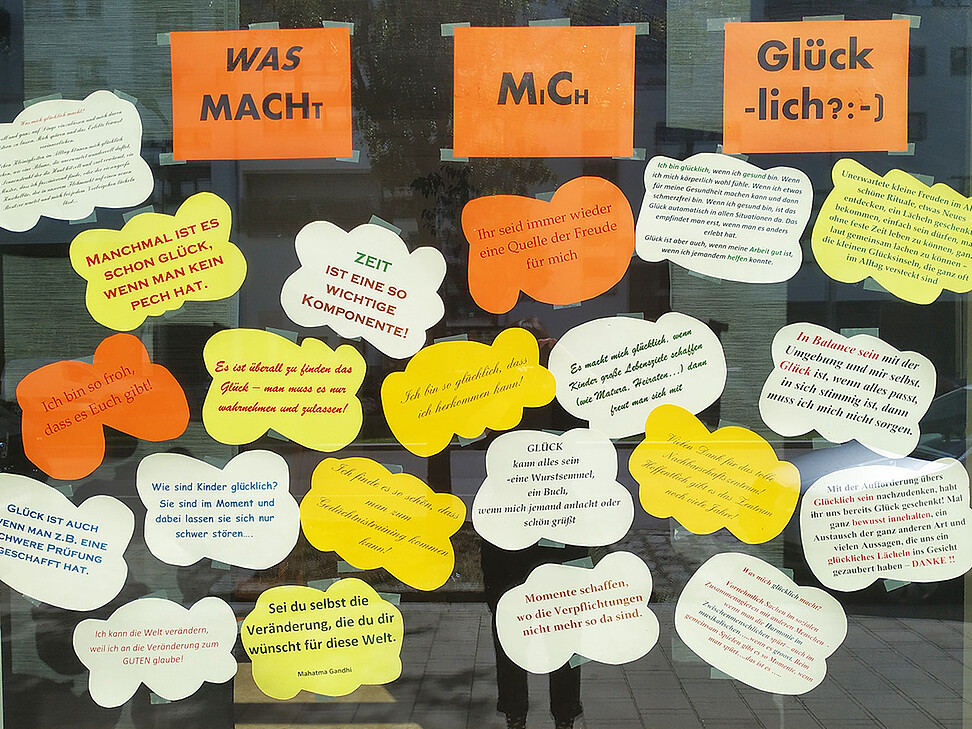 WAS
MACHT
MiCH
Glück
-lich?:-)
Was mich glücklich macht!
MANCHMAL IST ES
SCHON GLÜCK,
WENN MAN KEIN
PECH HAT.
ZEIT
IST EINE SO
WICHTIGE
KOMPONENTE!
Ihr seid immer wieder
eine Quelle der Freude
für mich
Ich bin glücklich, wenn ich gesund bin. Wenn
ich mich körperlich wohl fühle. Wenn ich etwas
für meine Gesundheit machen kann und dann
schmerzfrei bin. Wenn ich gesund bin, ist das
Glück automatisch in allen Situationen da. Das
empfindet man erst, wenn man es anders
erlebt hat.
Glück ist aber auch, wenn meine Arbeit gut ist,
wenn ich jemandem helfen konnte.
Unerwartete kleine Freuden im
schöne Rituale, etwas Neues
entdecken, ein Lächeln
bekommen, einfach sein dürfen,
ohne feste Zeit leben zu können,
laut gemeinsam lachen zu können –
die kleinen Glücksinseln, die ganz oft
im Alltag versteckt sind
Ich bin so froh,
dass es Euch gibt!
Es ist überall zu finden das
Glück – man muss es nur
wahrnehmen und zulassen!
Ich bin so glücklich, dass
ich herkommen kann!
Es macht mich glücklich, wenn
Kinder große Lebensziele schaffen
(wie Matura, Heiraten...) dann
freut man sich mit
In Balance sein mit der
Umgebung und mir selbst.
Glück ist, wenn alles passt,
in sich stimmig ist, dann
muss ich mich nicht sorgen.
GLÜCK IST AUCH
WENN MAN Z.B. EINE
SCHWERE PRÜFUNG
GESCHAFFT HAT.
Wie sind Kinder glücklich?
Sie sind im Moment und
dabei lassen sie sich nur
schwer stören....
Ich finde es so schön, dass
man zum
Gedächtnistraining kommen
kann!
GLÜCK
kann alles sein
-eine Wurstsemmel,
ein Buch,
wenn mich jemand anlacht oder
schön grüßt
Vielen Dank für das tolle
Nachbarschaftszentrum!
Hoffentlich gibt es das Zentrum
noch viele Jahre!
Mit der Aufforderung über
Glücklich sein nachzudenken, habt
ihr uns bereits Glück geschenkt! Mal
ganz bewusst innehalten, ein
Austausch der ganz anderen Art und
vielen Aussagen, die uns ein
glückliches Lächeln ins Gesicht
gezaubert haben – DANKE !!
Ich kann die Welt verändern,
weil ich an die Veränderung zum
GUTEN glaube!
Sei du selbst die
Veränderung, die du dir
wünscht für diese Welt.
Mahatma Gandhi
Momente schaffen,
wo die Verpflichtungen
nicht mehr so da sind.
Was mich glücklich macht?
Vornehmlich Sachen im sozialen
Zusammenagieren mit anderen Menschen
wenn man die Harmonie im
Zwischenmenschlichen spürt – auch im
musikalischen.....wenn es groovt. Beim
gemeinsam Spielen gibt es so Momente, wenn
man spürt...das ist es .....